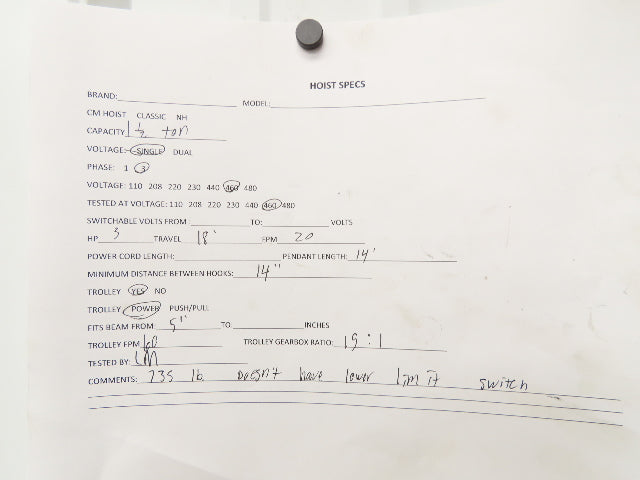 HOIST SPECS
BRAND: MODEL:
CM HOIST CLASSIC NH
CAPACITY 1 1/2 ton
VOLTAGE: SINGLE DUAL
PHASE: 1 3
VOLTAGE: 110 208 220 230 440 460 480
TESTED AT VOLTAGE: 110 208 220 230 440 460 480
SWITCHABLE VOLTS FROM: TO: VOLTS
HP 3 TRAVEL 18' FPM 20
POWER CORD LENGTH: PENDANT LENGTH: 14'
MINIMUM DISTANCE BETWEEN HOOKS: 14"
TROLLEY YES NO
TROLLEY POWER PUSH/PULL
FITS BEAM FROM: 5" TO: INCHES
TROLLEY FPM TROLLEY GEARBOX RATIO: 15:1
TESTED BY:
COMMENTS: 235 lb Doesn't have lower limit switch